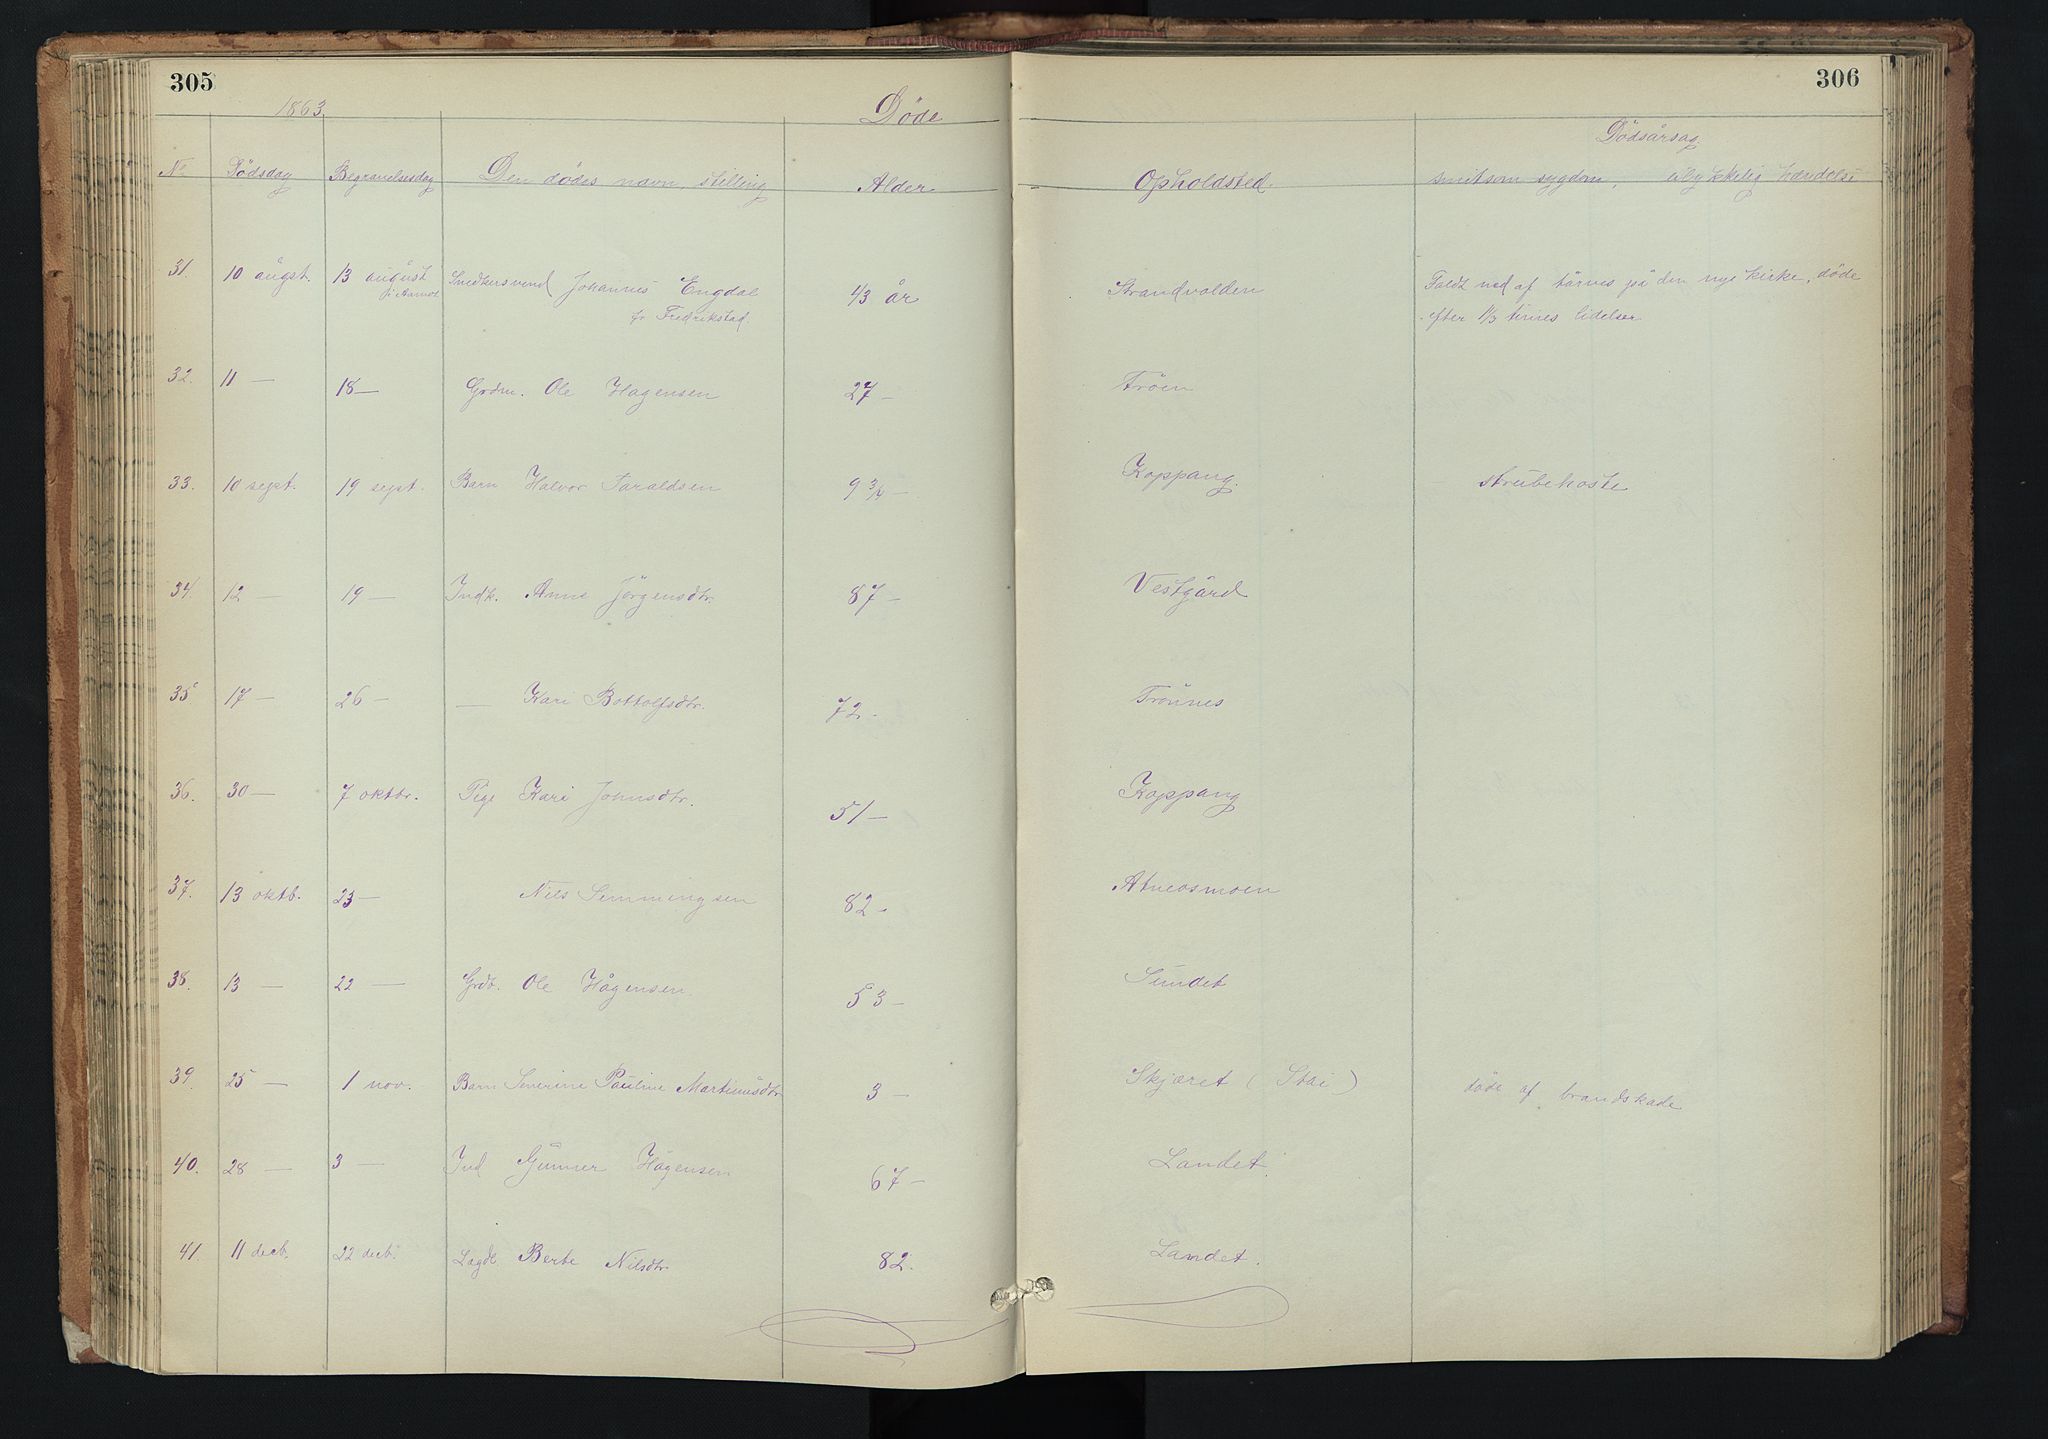 305
306
1863
Døde
Dødsårsag
No Dødsdag Begravelsesdag Den dødes navn, stilling Alder Opholdsted. smitsom sygdom, ulykkelig hændelse
31. 10 ågst. 13 august Snedkersvend Johannes Engdal 43 år Strandvolden Faldt ned af tårnet på den nye kirke, døde
i Aamot fr Fredrikstad. efter 1/3 times lidelser
32. 11 — 18 — Grdm. Ole Hagensen 27 — Trøen
33. 10 sept. 19 sept. Barn Halvor Taraldsen 9 3/6 — Koppang. strubehoste
34. 12 — 19 — Indk. Anne Jörgensdtr. 87 — Vestgård
35 17 — 26 — — Kari Bottolfsdtr. 72 - Trönnes
36. 30 — 7 oktbr. Pige Kari Johnsdtr. 51 — Koppang
37. 13 oktb. 23 — Nils Semmingsen 82 - Atneosmoen
38. 13 — 22 — Grdb. Ole Hågensen 53 — Sundet
39. 25 — 1 nov. Barn Severine Pauline Martinusdtr 3 — Skjæret (Stai) døde af brandskade
40. 28 — 3 — Ind Gunner Hågensen 67 — Landet.
41. 11 decb. 22 decb. Lægdl Berte Nilsdtr. 82. Landet.